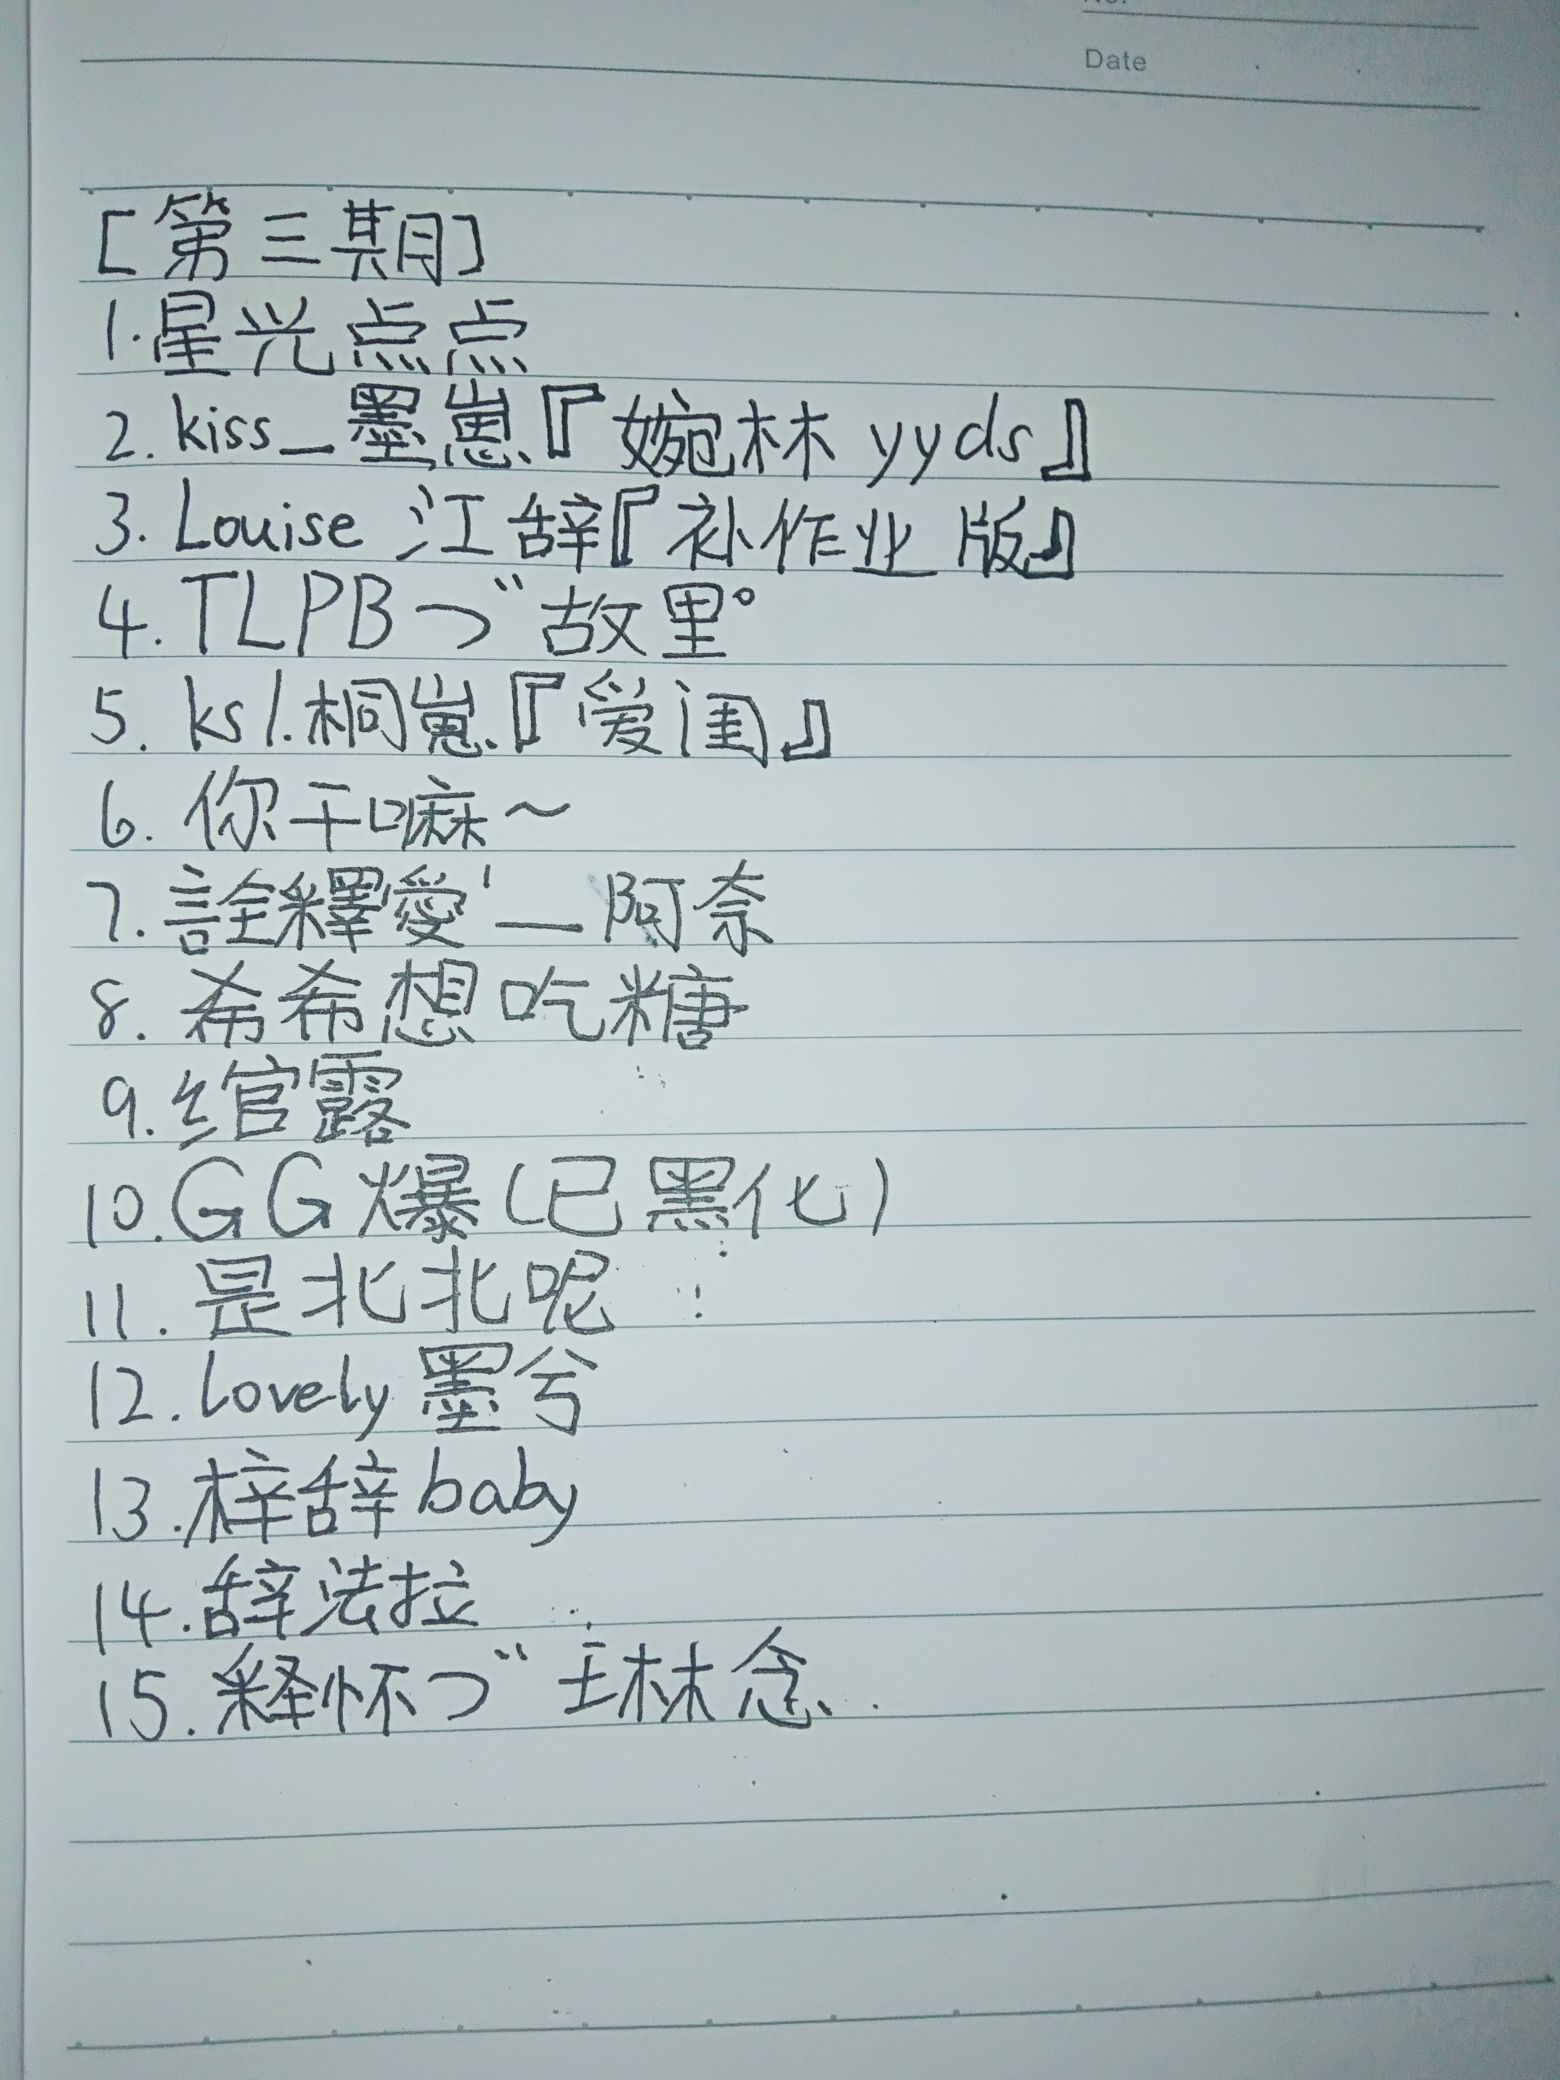 Date
[第三期]
1.星光点点
2.kiss_墨崽『婉林yyds』
3.Louise 江辞『补作业版』
4.TLPBづ故里°
5.ks1.桐崽.『爱闺』
6.你干嘛~
7.詮釋愛'—阿奈
8.希希想吃糖
9.绾露
10.GG爆(已黑化)
11.是北北呢
12.lovely墨兮
13.梓辞baby
14.辞法拉
15.释怀づ琳念.